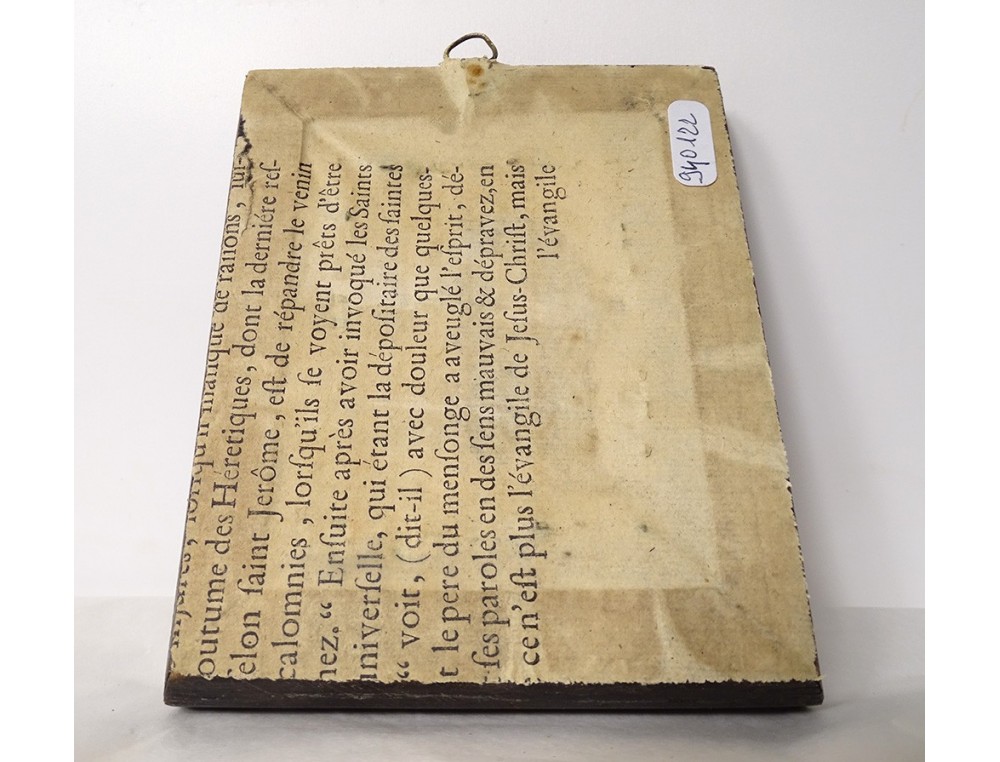 injures, lorsqu'il manque de raisons, sui-
outume des Héretiques, dont la derniére reſ-
ſelon ſaint Jerôme, eſt de répandre le venin
calomnies, lorſqu'ils ſe voyent prêts d'être
nez. “ Enſuite après avoir invoqué les Saints
univerſelle, qui étant la dépoſitaire des ſaintes
“ voit, (dit-il) avec douleur que quelques-
t le pere du menſonge a aveuglé l'eſprit, dé-
ſes paroles en des ſens mauvais & dépravez, en
ce n'eſt plus l'évangile de Jeſus-Chriſt, mais
l'évangile
940122